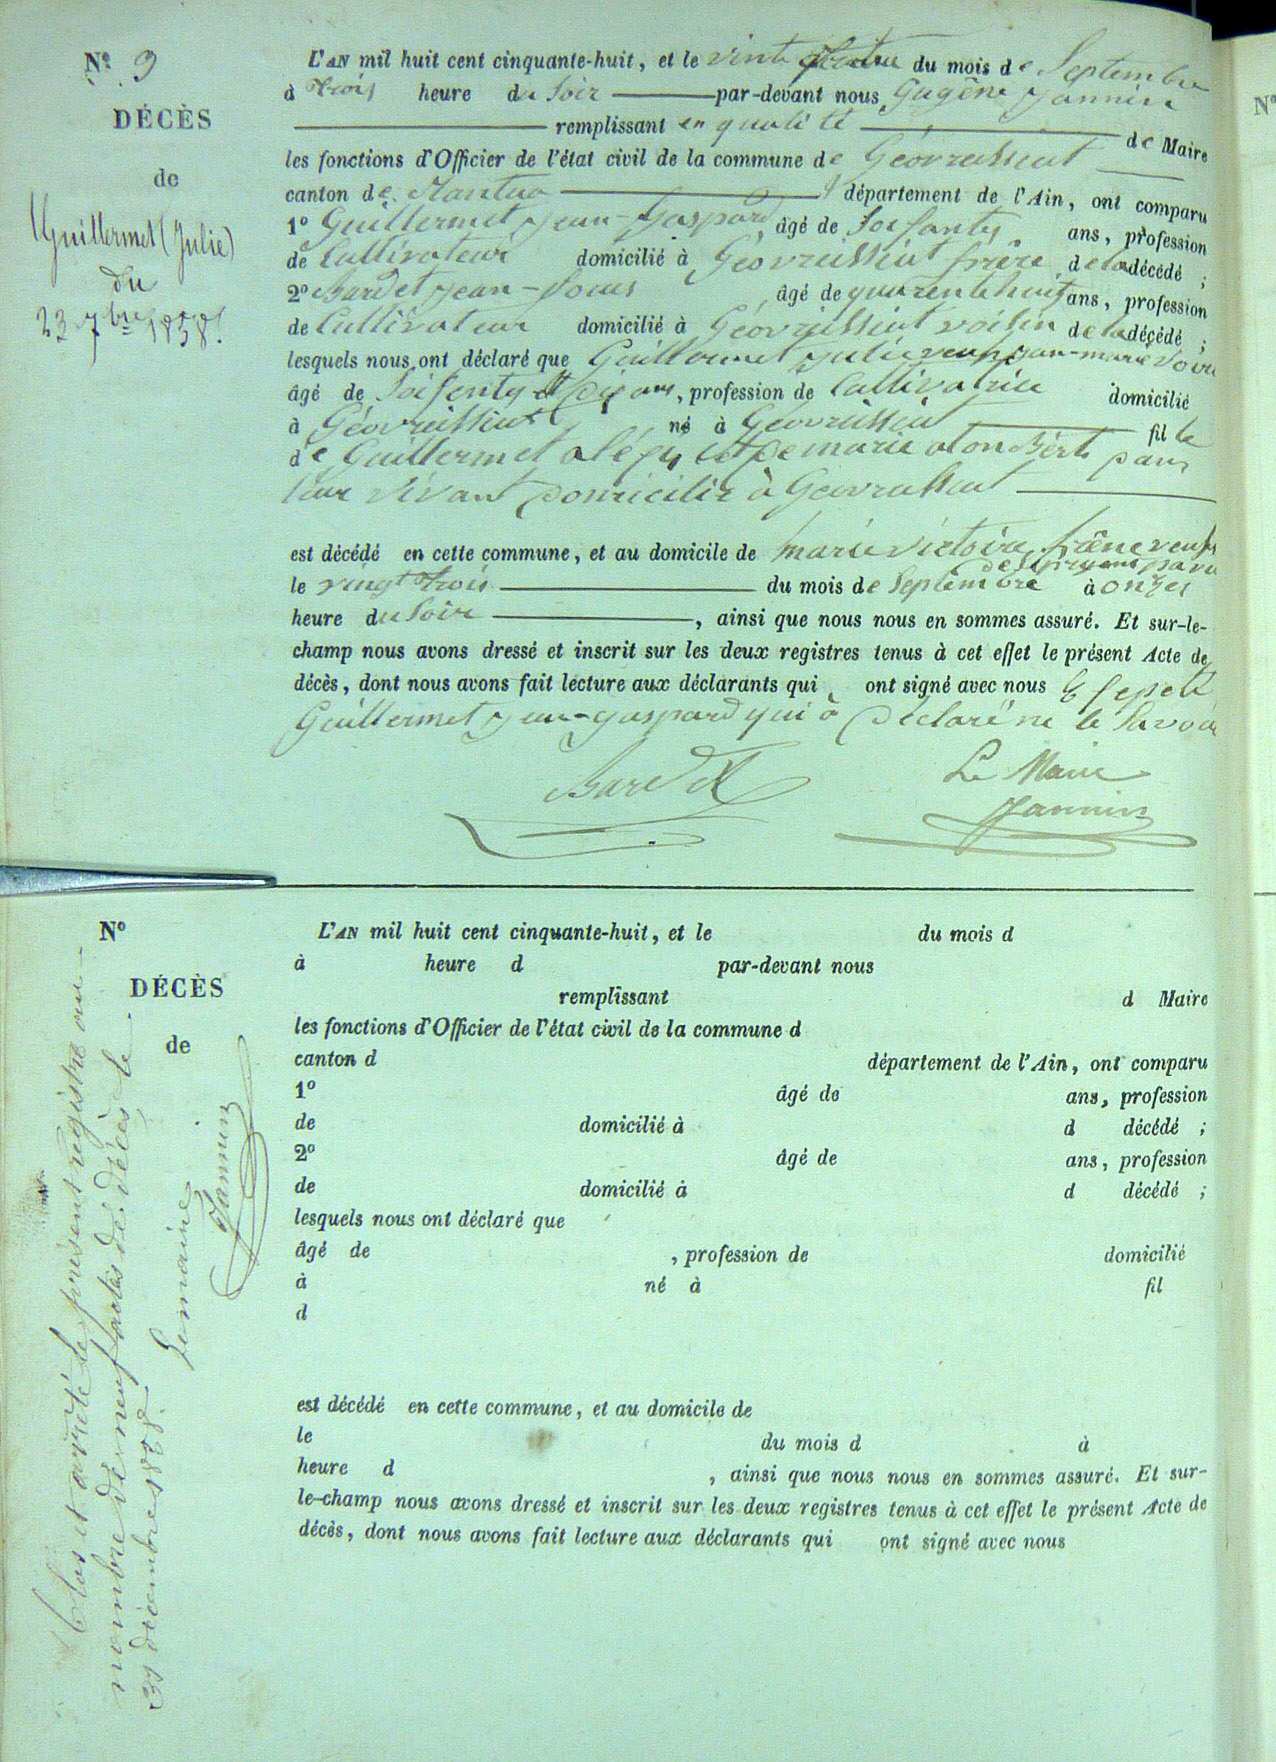 Nº 9
DÉCÈS
de
Guillermet (Julie)
du
23 7bre 1858.
L'AN mil huit cent cinquante-huit, et le vint quatre du mois de Septembre
à trois heure du Soir par-devant nous Eugêne Jannin
remplissant en qualité de Maire
les fonctions d'Officier de l'état civil de la commune de Géovreissiat
canton de Nantua département de l'Ain, ont comparu
1º Guillermet Jean-Gaspard âgé de Soisante ans, profession
de Cultivateur domicilié à Géovreissiat frère de la décédé ;
2º Bardet Jean-Louis âgé de quarente huit ans, profession
de Cultivateur domicilié à Géovreissiat voisin de la décédé ;
lesquels nous ont déclaré que Guillermet Julie veuve jean-marie
âgé de Soisente et dix ans, profession de Cultivatrice domicilié
à Géovreissiat né à Géovreissiat fille
de Guillermet et de marie dans
leur vivant domicilié à Géovreissiat
est décédé en cette commune, et au domicile de marie victoire veuve
le vingt trois du mois de Septembre à onzes
heure du Soir, ainsi que nous nous en sommes assuré. Et sur-le-
champ nous avons dressé et inscrit sur les deux registres tenus à cet effet le présent Acte de
décès, dont nous avons fait lecture aux déclarants qui ont signé avec nous
Guillermet Jean-gaspard qui à déclaré ne le Savoir
Bardet
Le Maire
Jannin
Nº
DÉCÈS
de
L'AN mil huit cent cinquante-huit, et le du mois d
à heure d par-devant nous
remplissant d Maire
les fonctions d'Officier de l'état civil de la commune d
canton d département de l'Ain, ont comparu
1º âgé de ans, profession
de domicilié à d décédé ;
2º âgé de ans, profession
de domicilié à d décédé ;
lesquels nous ont déclaré que
âgé de , profession de domicilié
à né à fil
d
est décédé en cette commune, et au domicile de
le du mois d à
heure d , ainsi que nous nous en sommes assuré. Et sur-
le-champ nous avons dressé et inscrit sur les deux registres tenus à cet effet le présent Acte de
décès, dont nous avons fait lecture aux déclarants qui ont signé avec nous
Clos et arrêté le présent registre au
nombre de neuf actes de décès le
31 décembre 1858.
Le maire
Jannin
Nº